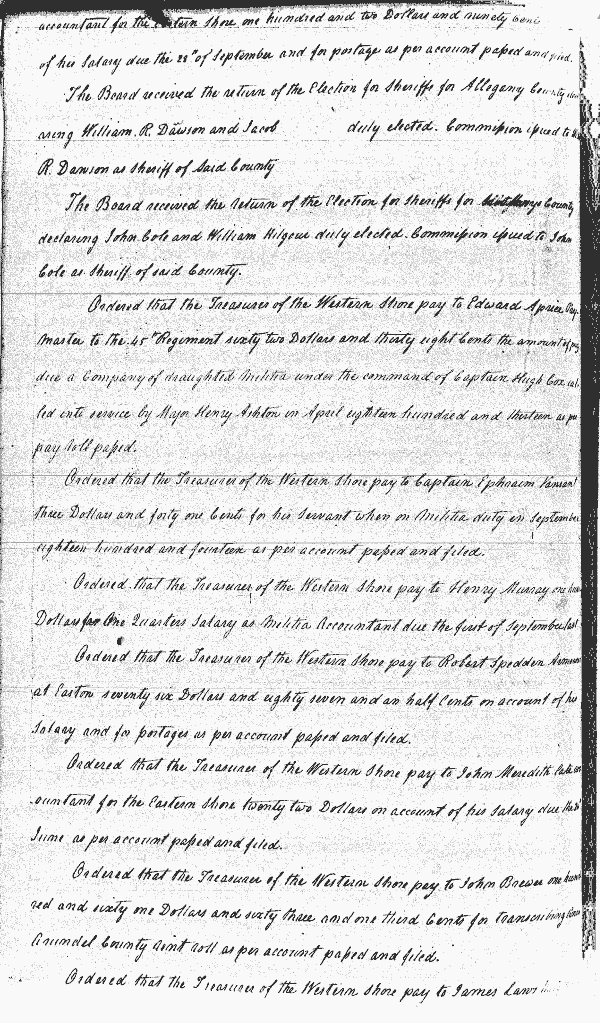 accountant for the Eastern Shore one hundred and two Dollars and ninety Cents
of his Salary due the 28th of September and for postage as per account paßed and filed.
The Board received the return of the Election for Sheriffs for Allegany County
ring William. R. Dawson and Jacob duly elected. Commißion ißued to
R. Dawson as Sheriff of Said County
The Board received the return of the Election for Sheriffs for County
declaring John Cole and William Kilgour duly elected. Commißion ißued to John
Cole as Sheriff of said County.
Ordered that the Treasurer of the Western Shore pay to Edward Aprice Pay
Master to the 45th Regiment sixty two Dollars and thirty eight Cents the amount of pay
due a Company of draughted Militia under the command of Captain Hugh Cox cal
led into service by Major Henry Ashton in April eighteen hundred and thirteen as per
pay roll paßed.
Ordered that the Treasurer of the Western Shore pay to Captain Ephraim Vansant
three Dollars and forty one Cents for his Servant when on Militia duty in September
eighteen hundred and fourteen as per account paßed and filed.
Ordered that the Treasurer of the Western Shore pay to Henry Murray one
Dollars for One Quarters Salary as Militia Accountant due the first of September last
Ordered that the Treasurer of the Western Shore pay to Robert Spedden Armourer
at Easton seventy six Dollars and eighty seven and an half Cents on account of his
Salary and for postages as per account paßed and filed.
Ordered that the Treasurer of the Western Shore pay to John Meredith
ountant for the Eastern Shore twenty two Dollars on account of his Salary due the
June as per account paßed and filed.
Ordered that the Treasurer of the Western Shore pay to John Brewer one hund
red and sixty one Dollars and sixty three and one third Cents for transcribing Ann
Arundel County Rent roll as per account paßed and filed.
Ordered that the Treasurer of the Western Shore pay to James